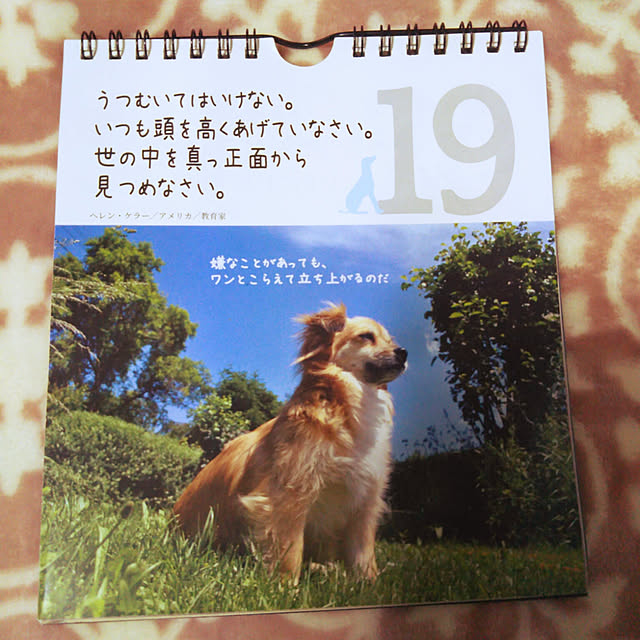 うつむいてはいけない。
いつも頭を高くあげていなさい。
世の中を真っ正面から
見つめなさい。
ヘレン・ケラー／アメリカ／教育家
19
嫌なことがあっても、
ワンとこらえて立ち上がるのだ